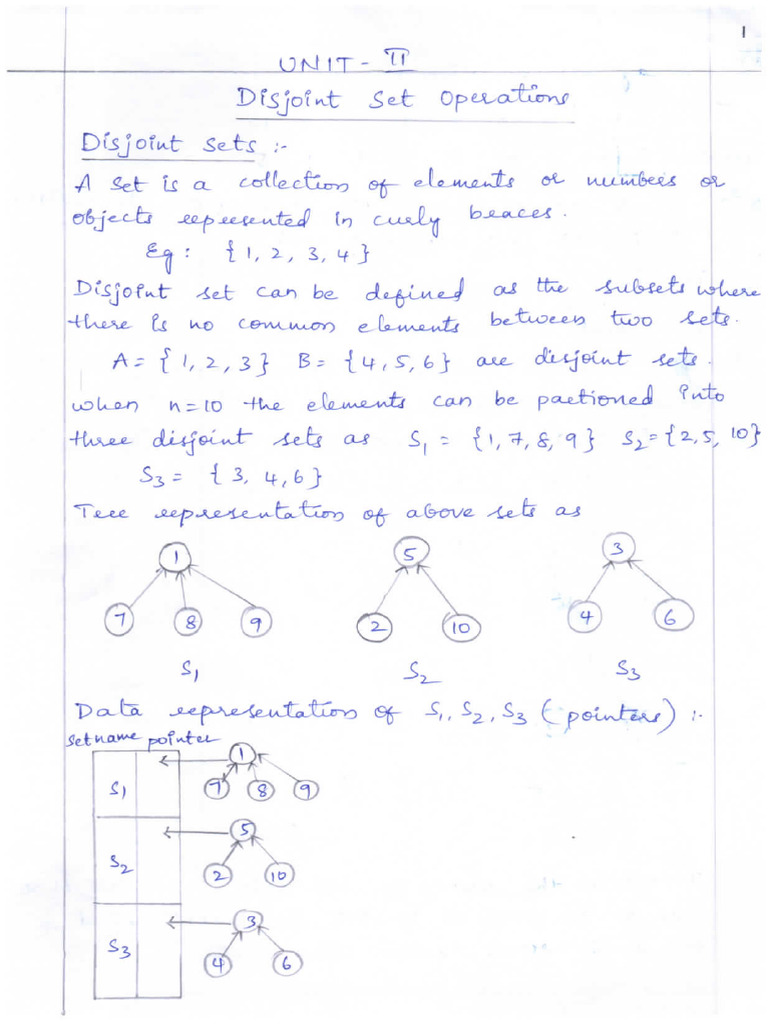 1
UNIT - II
Disjoint Set Operations
Disjoint Sets :-
A Set is a collection of elements or numbers or
objects represented in curly braces.
Eg : {1, 2, 3, 4}
Disjoint set can be defined as the subsets where
there is no common elements between two sets.
A = {1, 2, 3} B = {4, 5, 6} are disjoint sets.
when n=10 the elements can be partioned into
three disjoint sets as S1 = {1, 7, 8, 9} S2 = {2, 5, 10}
S3 = {3, 4, 6}
Tree representation of above sets as
1 5 3
7 8 9 2 10 4 6
S1 S2 S3
Data representation of S1, S2, S3 (pointers) :-
Set name pointer
1
S1 7 8 9
5
S2 2 10
3
S3 4 6